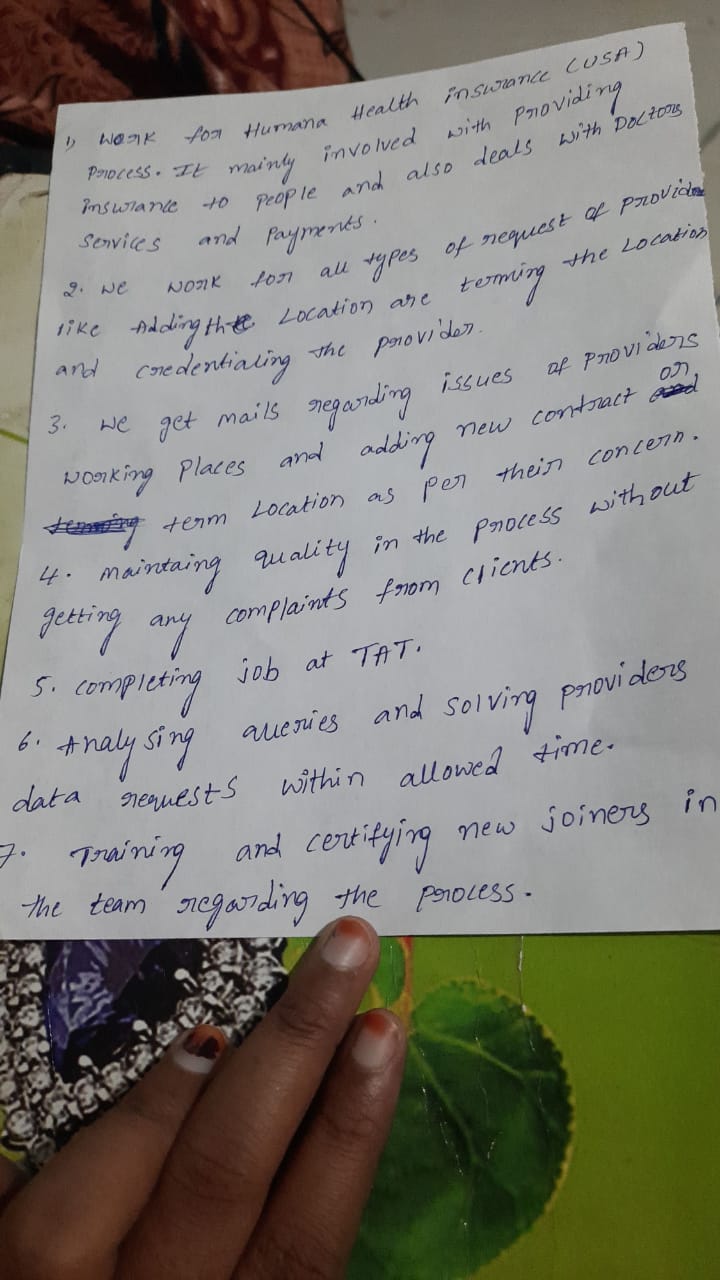 1) Work for Humana Health insurance (USA)
Process. It mainly involved with Providing
insurance to People and also deals with Doctors
Services and Payments.
2. We work for all types of request of Provider
like Adding the Location are terming the Location
and credentialing the provider.
3. We get mails regarding issues of Providers
working Places and adding new contract or
term Location as per their concern.
4. maintaing quality in the process without
getting any complaints from clients.
5. completing job at TAT.
6. Analysing queries and solving providers
data requests within allowed time.
7. Training and certifying new joiners in
the team regarding the process.